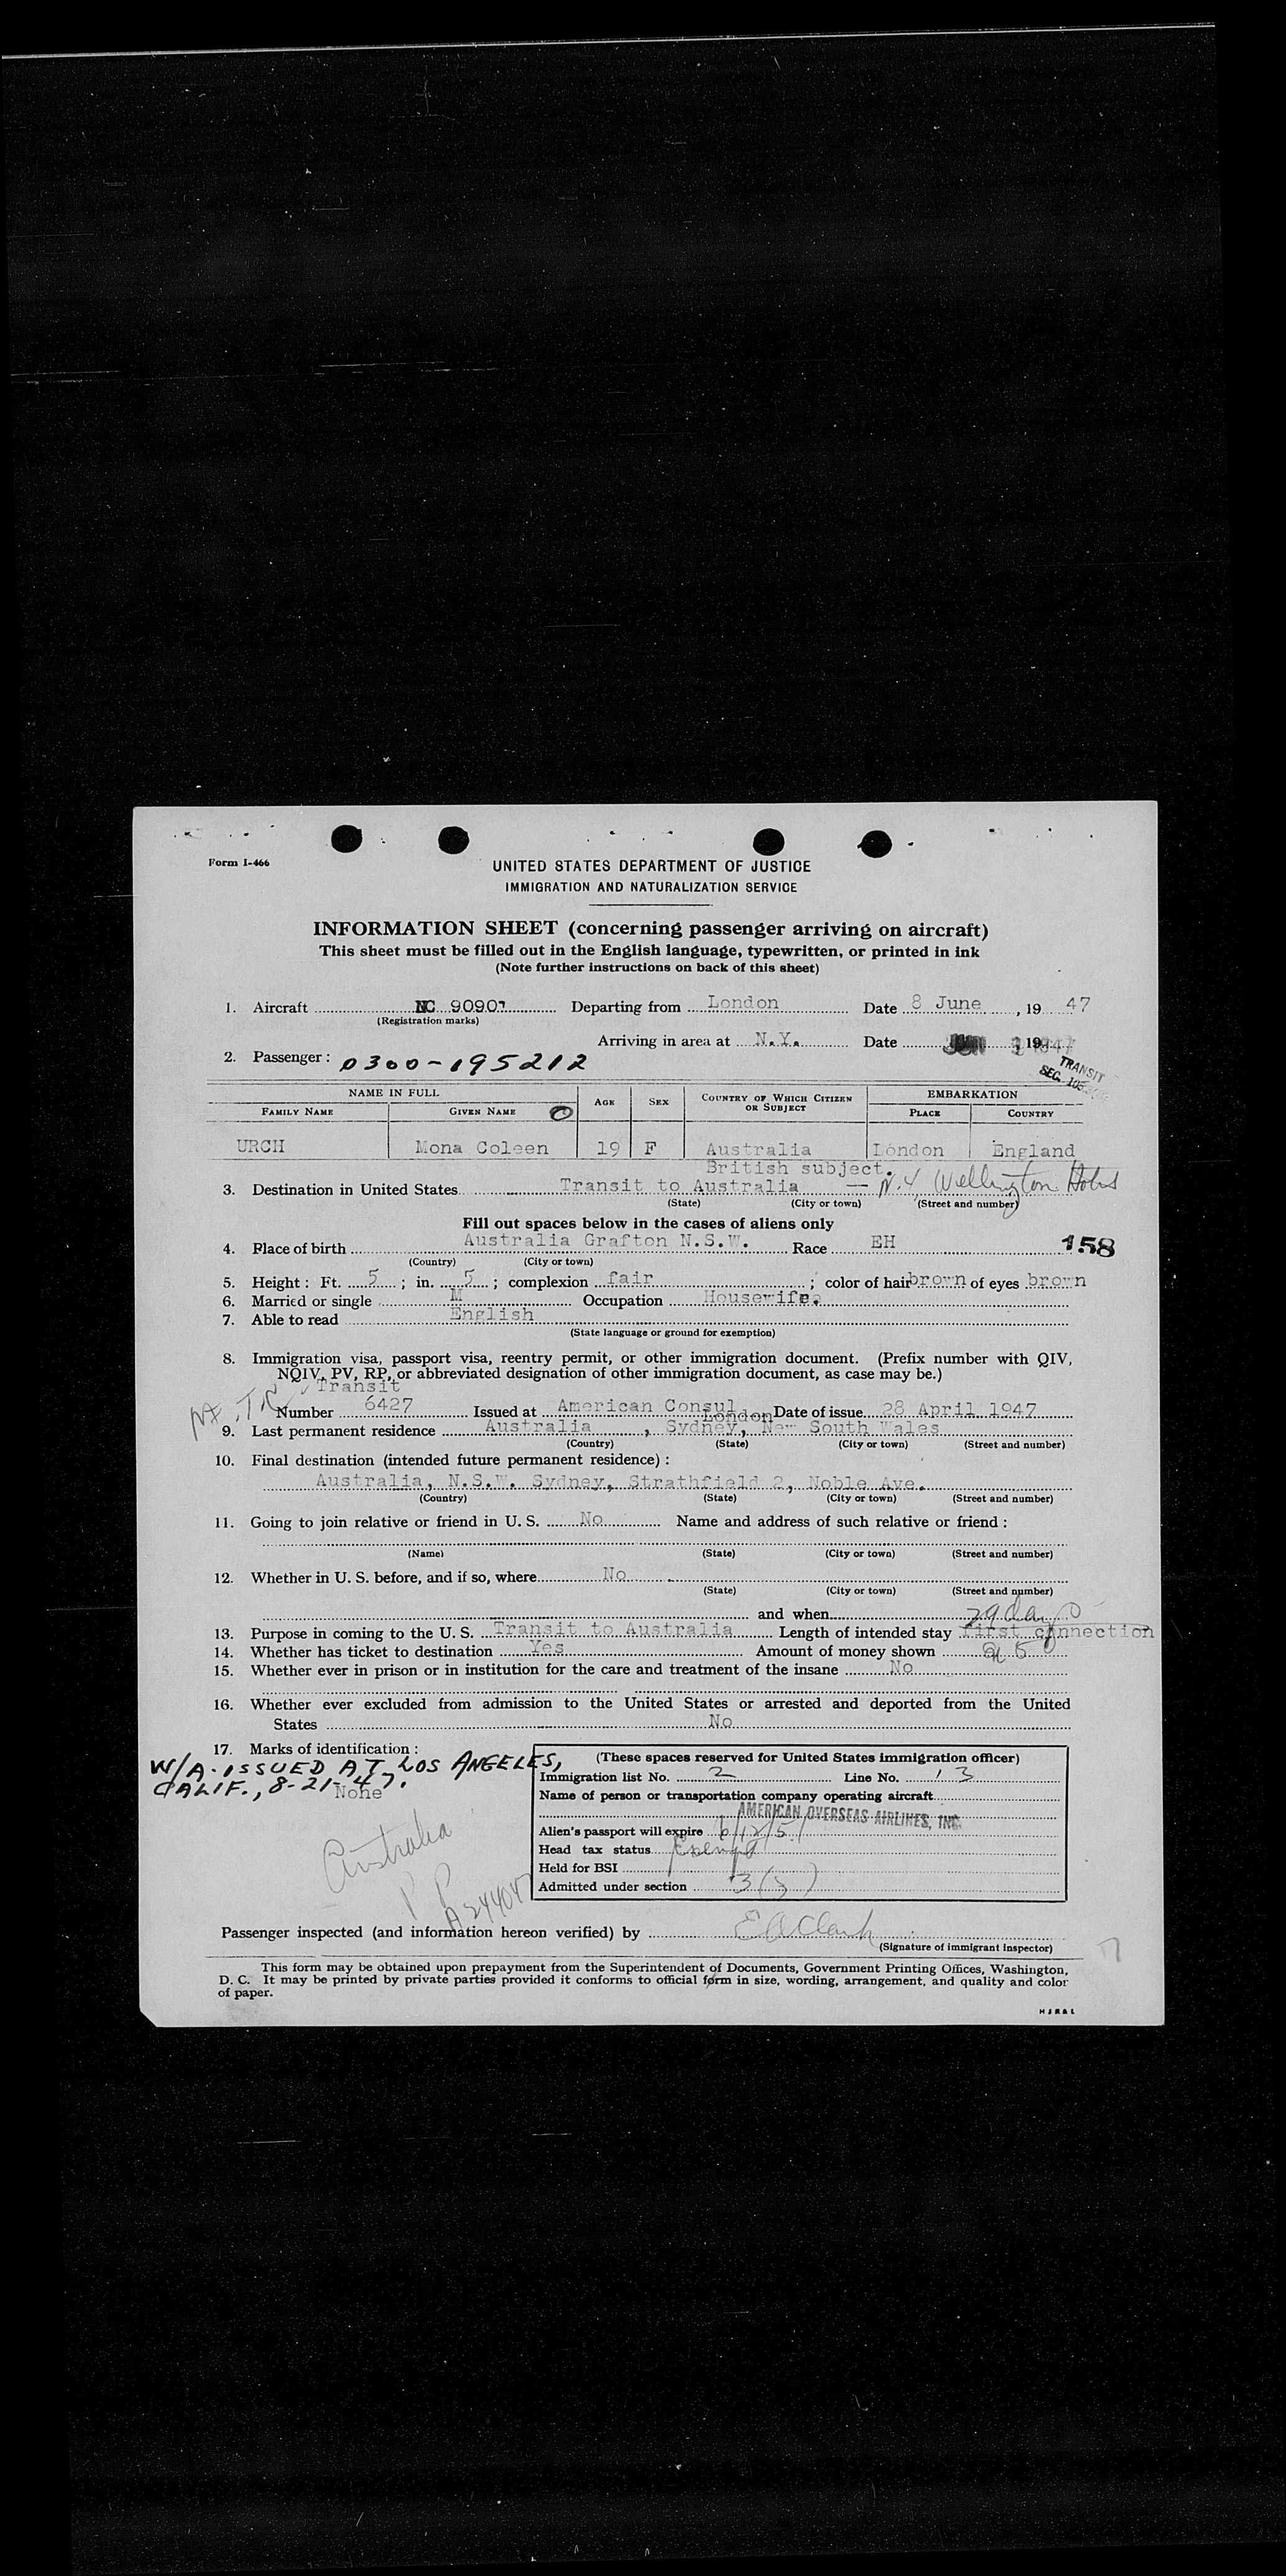 Form I-466
UNITED STATES DEPARTMENT OF JUSTICE
IMMIGRATION AND NATURALIZATION SERVICE
INFORMATION SHEET (concerning passenger arriving on aircraft)
This sheet must be filled out in the English language, typewritten, or printed in ink
(Note further instructions on back of this sheet)
1. Aircraft NC 90907 Departing from London Date 8 June , 19 47
(Registration marks)
Arriving in area at N.Y. Date JUN 1947
2. Passenger : 0300-195212
TRANSIT
SEC.
NAME IN FULL AGE SEX COUNTRY OF WHICH CITIZEN OR SUBJECT EMBARKATION
FAMILY NAME GIVEN NAME PLACE COUNTRY
URCH Mona Coleen 19 F Australia London England
British subject.
3. Destination in United States Transit to Australia — N.Y Wellington Hotel
(State) (City or town) (Street and number)
Fill out spaces below in the cases of aliens only
4. Place of birth Australia Grafton N.S.W. Race EH 158
(Country) (City or town)
5. Height : Ft. 5 ; in. 5 ; complexion fair ; color of hair brown of eyes brown
6. Married or single M Occupation Housewife.
7. Able to read English
(State language or ground for exemption)
8. Immigration visa, passport visa, reentry permit, or other immigration document. (Prefix number with QIV,
NQIV, PV, RP, or abbreviated designation of other immigration document, as case may be.)
Transit
Number 6427 Issued at American Consul London Date of issue 28 April 1947
9. Last permanent residence Australia , Sydney, New South Wales
(Country) (State) (City or town) (Street and number)
10. Final destination (intended future permanent residence) :
Australia, N.S.W. Sydney, Strathfield 2, Noble Ave.
(Country) (State) (City or town) (Street and number)
11. Going to join relative or friend in U. S. No Name and address of such relative or friend :
(Name) (State) (City or town) (Street and number)
12. Whether in U. S. before, and if so, where No
(State) (City or town) (Street and number)
and when 29 days
13. Purpose in coming to the U. S. Transit to Australia Length of intended stay first connection
14. Whether has ticket to destination Yes Amount of money shown
15. Whether ever in prison or in institution for the care and treatment of the insane No
16. Whether ever excluded from admission to the United States or arrested and deported from the United
States No
17. Marks of identification :
W/A. ISSUED AT LOS ANGELES,
CALIF., 8-21-47.
None
Australia
PP
A244047
(These spaces reserved for United States immigration officer)
Immigration list No. 2 Line No. 13
Name of person or transportation company operating aircraft
AMERICAN OVERSEAS AIRLINES, INC.
Alien's passport will expire 6/12/51
Head tax status Exempt
Held for BSI
Admitted under section 3(3)
Passenger inspected (and information hereon verified) by E A Clark
(Signature of immigrant inspector)
This form may be obtained upon prepayment from the Superintendent of Documents, Government Printing Offices, Washington,
D. C. It may be printed by private parties provided it conforms to official form in size, wording, arrangement, and quality and color
of paper.
H J R & L